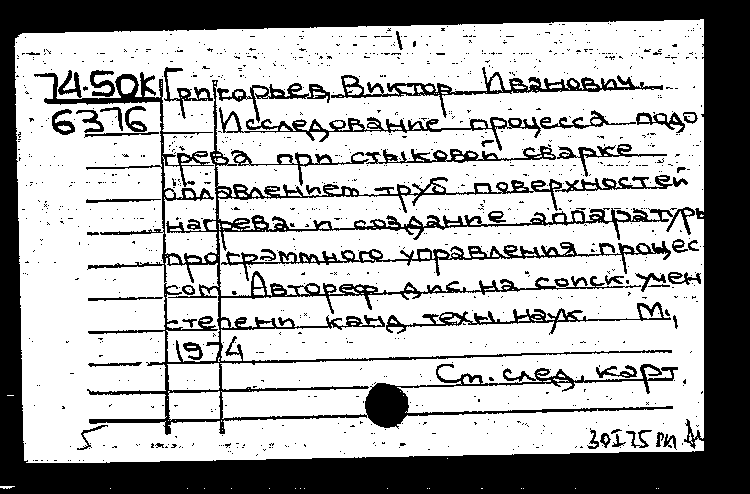 1.
74-50К Григорьев, Виктор Иванович.
6376 Исследование процесса подо-
грева при стыковой сварке
оплавлением труб поверхностей
нагрева и создание аппаратуры
программного управления процес
сом. Автореф. дис. на соиск. учен
степени канд техн. наук. М.,
1974
См. след. карт.
5
30I75